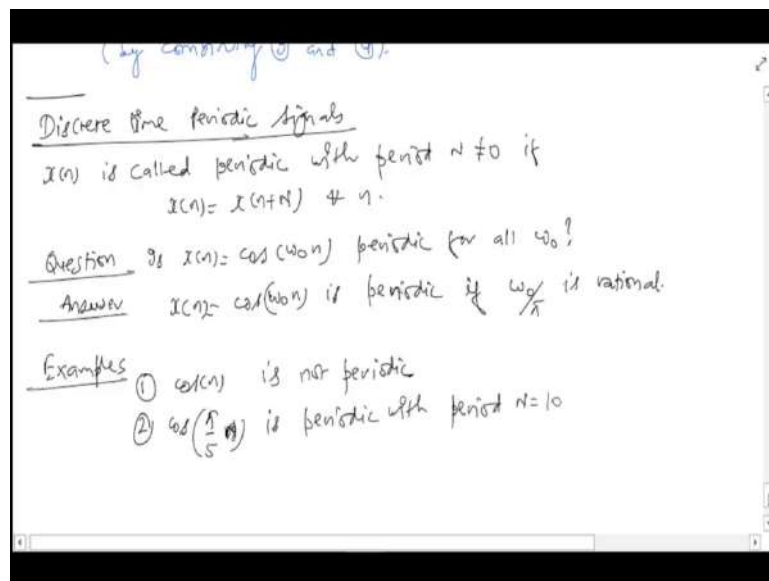 (by combining ③ and ④).
Discrete time Periodic Signals
x(n) is called periodic with period N ≠ 0 if
x(n) = x(n+N) ∀ n.
Question Is x(n) = cos(ω₀n) periodic for all ω₀?
Answer x(n) = cos(ω₀n) is periodic if ω₀/π is rational.
Examples
① cos(n) is not periodic
② cos(π/5 n) is periodic with period N=10